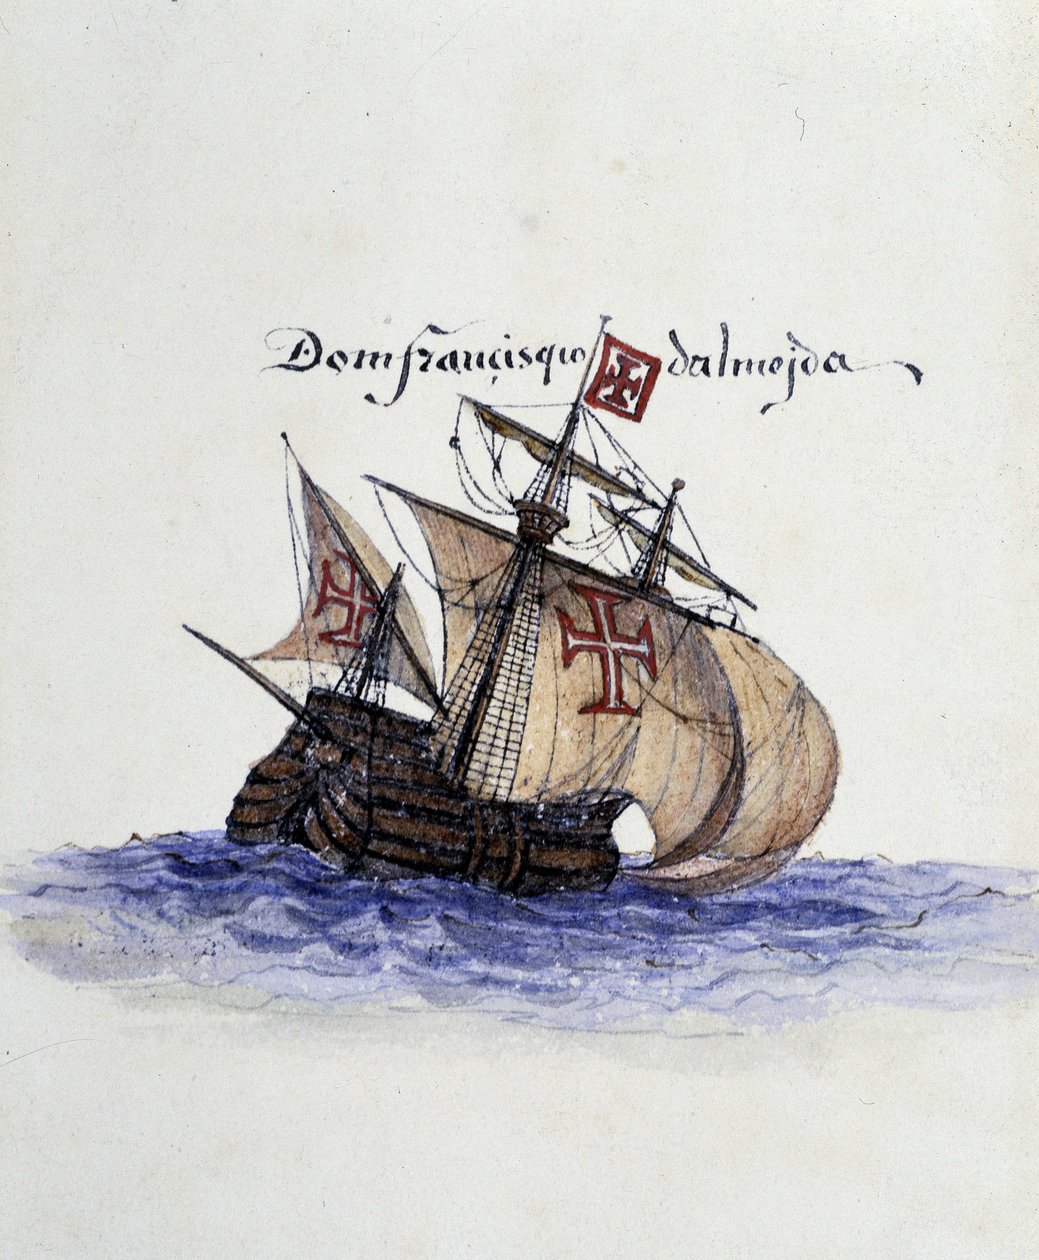 Dom françisquo dalmejda